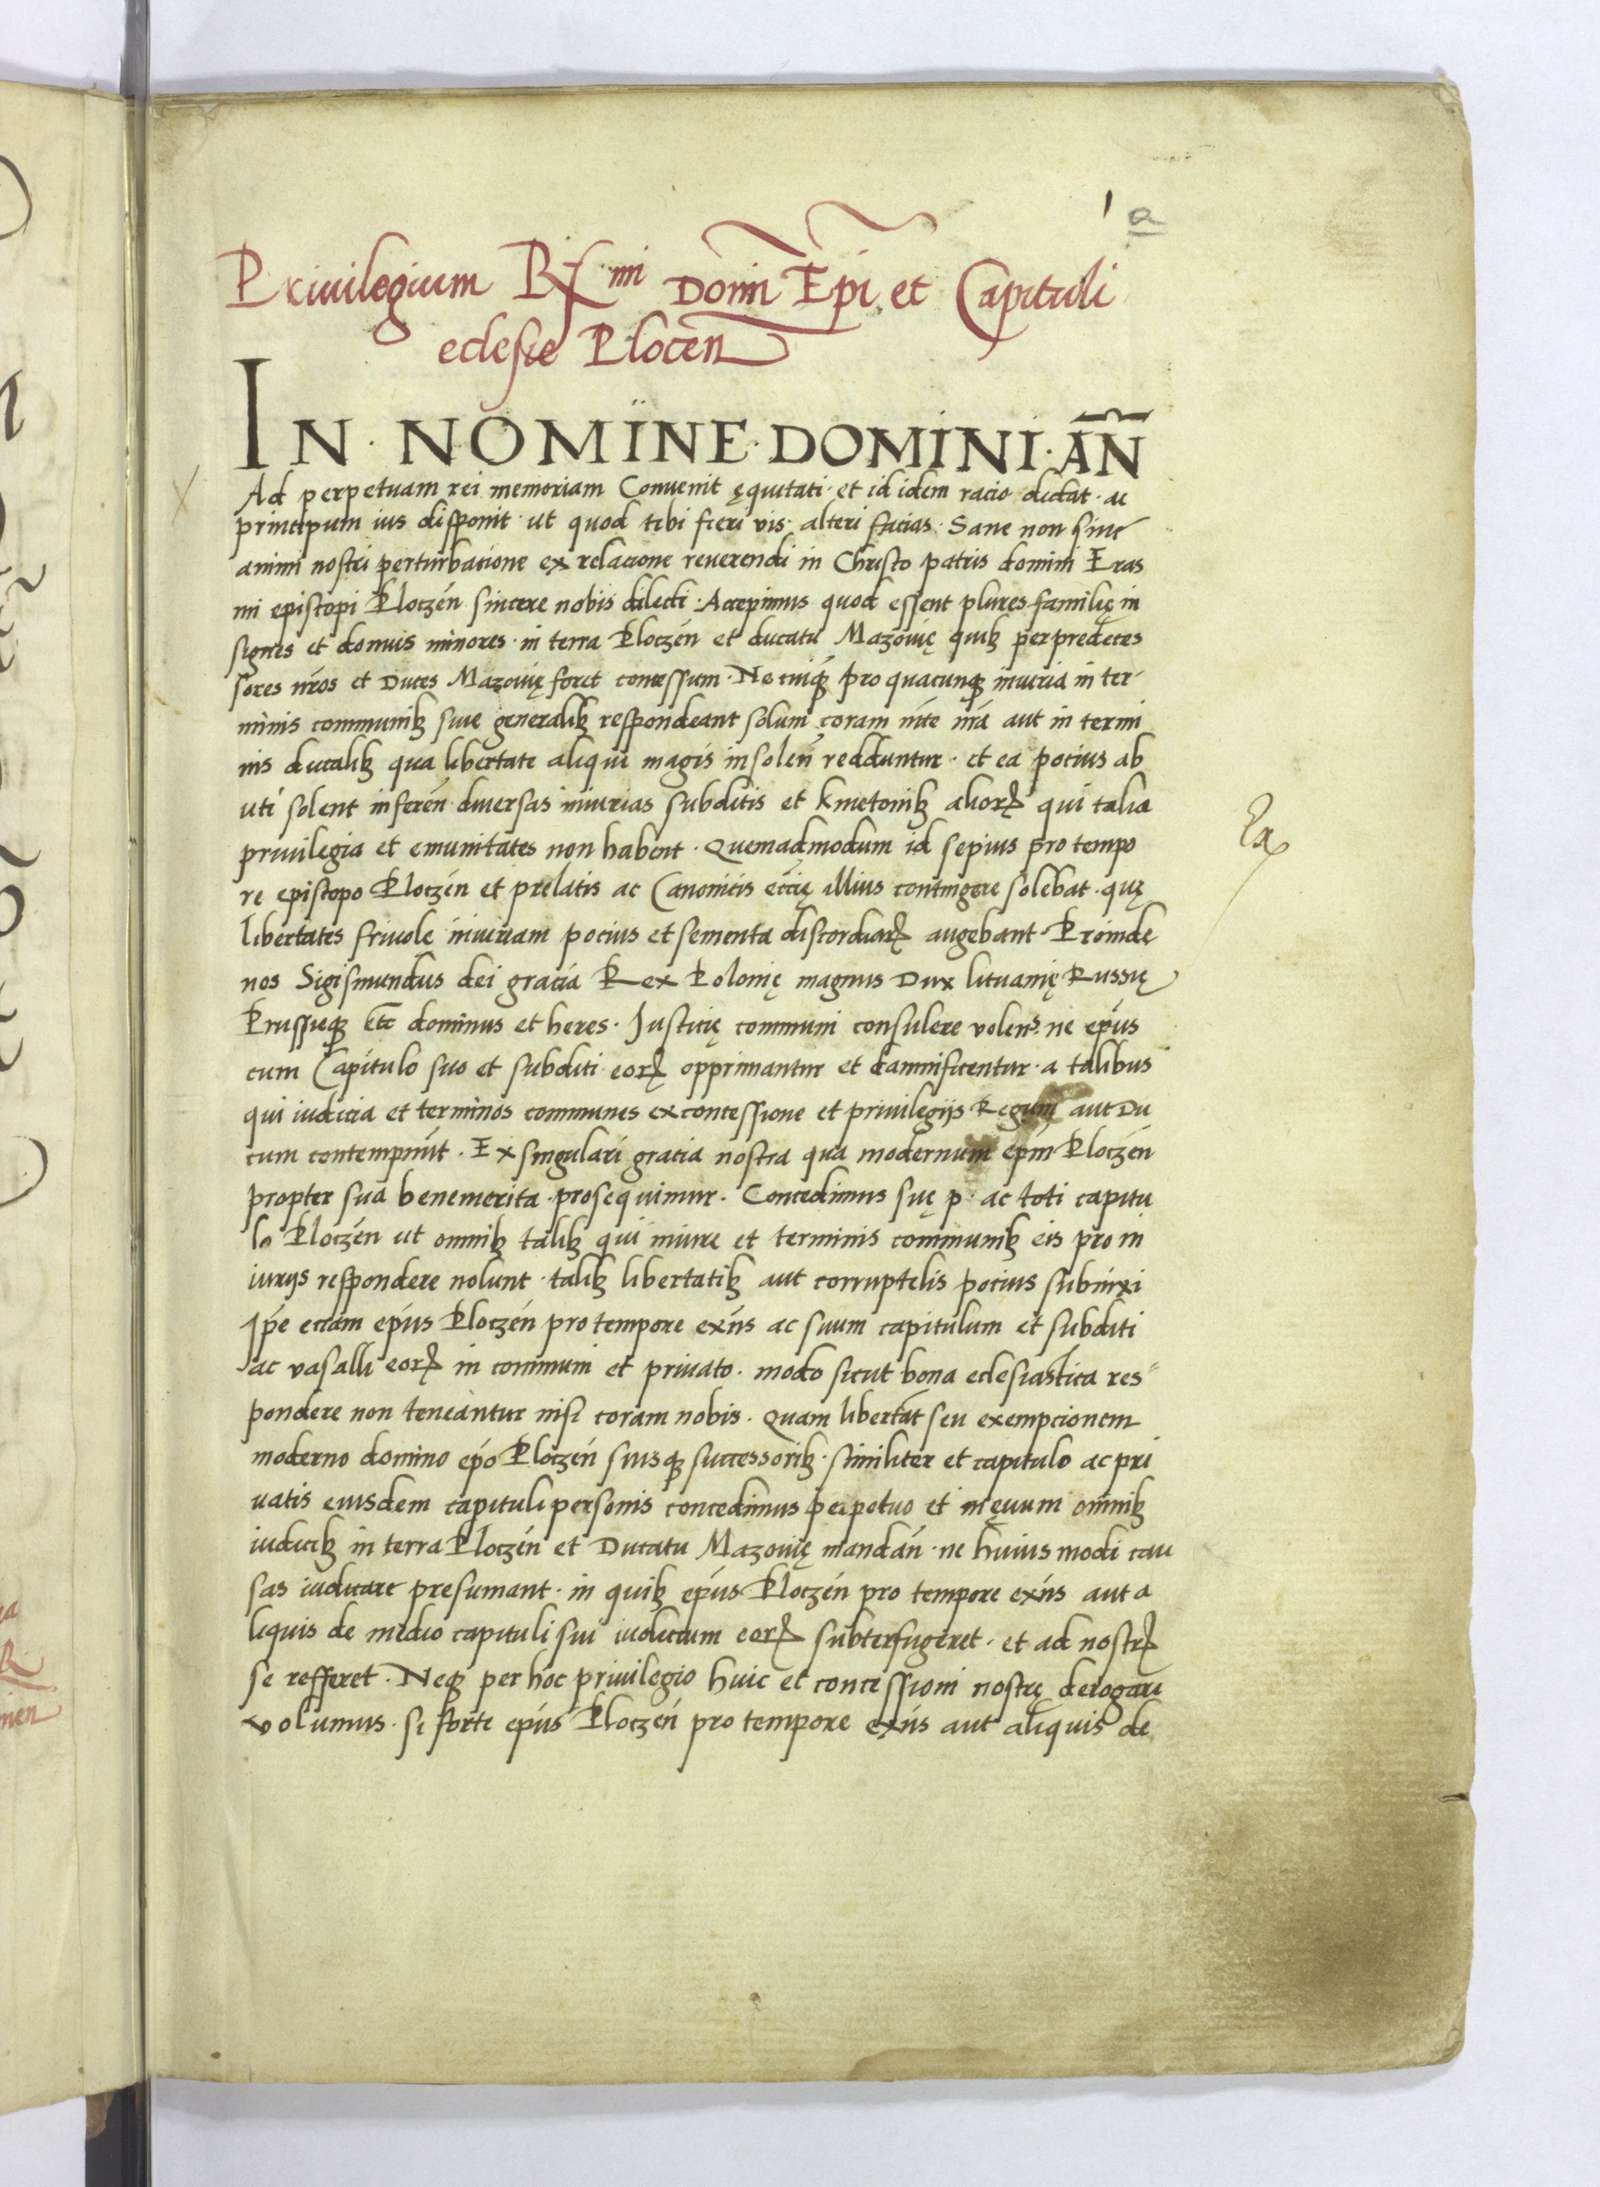 1 a
Priuilegium Rx mi Domĩ Epĩ et Capituli
eclesie Plocen̄
IN · NOMINE · DOMINI · AM̃N
Ad perpetuam rei memoriam Conuenit ęquitati · et id idem racio dictat · ac
principum ius disponit · ut quod tibi fieri vis · alteri facias · Sane non sine
animi nostri perturbatione ex relacione reuerendi in Christo patris domini Eras
mi episcopi Ploczen̄ sincere nobis dilecti · Accepimus quod essent plures familię in
signes et domus minores · in terra Ploczen̄ et ducatu Mazouię quibꝫ per predeces
sores nr̄os et Duces Mazouię foret concessum · Ne cuiqꝫ pro quacunqꝫ iniuria in ter-
minis communibꝫ siue generalibꝫ respondeant solum coram mt̄e nr̄a aut in termi
nis ducalibꝫ qua libertate aliqui magis insolen̄ redduntur · et ea pocius ab
uti solent inferen̄ diuersas iniurias subditis et kmetonibꝫ alioꝝ qui talia
priuilegia et emunitates non habent · Quemadmodum id sepius pro tempo
re episcopo Ploczen̄ et prelatis ac Canonicis ecc̄ię illius contingere solebat · quę
libertates friuole iniuriam pocius et sementa discordiaꝝ augebant · Proinde
nos Sigismundus dei gracia Rex Polonię magnus Dux lituanię Russię
Prussieqꝫ Etc dominus et heres · Iusticię communi consulere volens · ne ep̄us
cum Capitulo suo et subditi eoꝝ opprimantur et damnificentur · a talibus
qui iudicia et terminos communes ex concessione et priuilegijs Regum aut Du
cum contempnūt · Ex singulari gratia nostra qua modernum ep̄m Ploczen̄
propter sua benemerita · prosequimur · Concedimus suę p · ac toti capitu
lo Ploczen̄ ut omnibꝫ talibꝫ qui in iure et terminis communibꝫ eis pro in
iurijs respondere nolunt · talibꝫ libertatibꝫ aut corruptelis pocius subnixi
Ip̄e eciam ep̄us Ploczen̄ pro tempore exn̄s ac suum capitulum et subditi
ac vasalli eoꝝ in communi et priuato · modo sicut bona eclesiastica res-
pondere non teneantur nisi coram nobis · Quam libertat̄ seu exempcionem
moderno domino ep̄o Ploczen̄ suisqꝫ successoribꝫ · similiter et capitulo ac pri
uatis eiusdem capituli personis concedimus perpetuo et in ęuum omnibꝫ
iudicibꝫ in terra Ploczen̄ et Ducatu Mazouię mandan̄ · ne huius modi cau
sas iudicare presumant · in quibꝫ ep̄us Ploczen̄ pro tempore exn̄s aut a
liquis de medio capituli sui iudicium eoꝝ subterfugeret · et ad nostꝝ
se refferet · Neqꝫ per hoc priuilegio huic et concessioni nostrę derogare
volumus · si forte ep̄us Ploczen̄ pro tempore exn̄s aut aliquis de